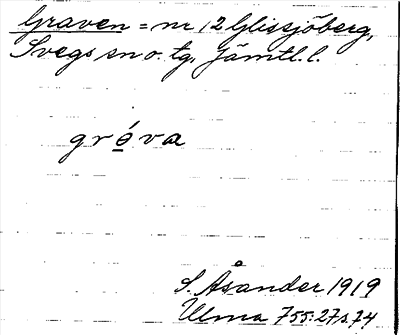 Graven = nr 12 Glissjöberg,
Svegs sn o. tg. Jämtl. l.
gró̱va
S. Åsander 1919
Ulma 755:27 s. 74